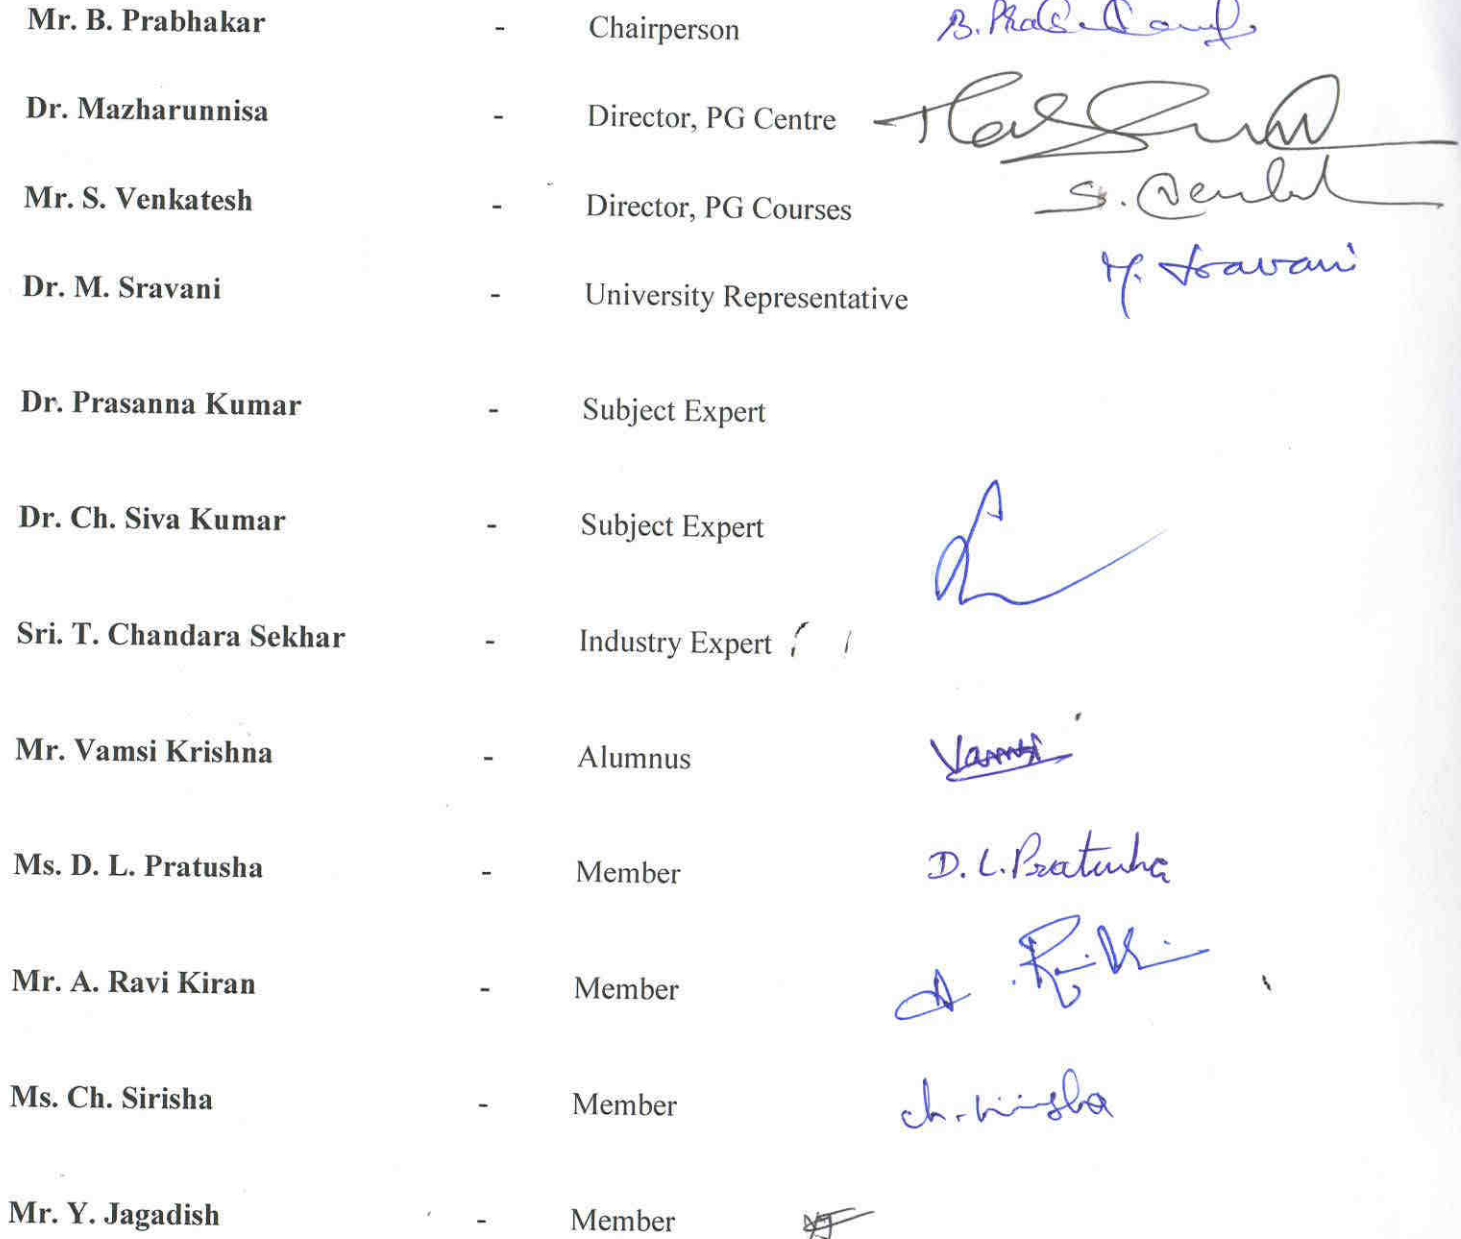 Mr. B. Prabhakar - Chairperson
Dr. Mazharunnisa - Director, PG Centre
Mr. S. Venkatesh - Director, PG Courses S. Venkat
Dr. M. Sravani - University Representative M. Sravani
Dr. Prasanna Kumar - Subject Expert
Dr. Ch. Siva Kumar - Subject Expert
Sri. T. Chandara Sekhar - Industry Expert
Mr. Vamsi Krishna - Alumnus Vamsi
Ms. D. L. Pratusha - Member D. L. Pratusha
Mr. A. Ravi Kiran - Member
Ms. Ch. Sirisha - Member
Mr. Y. Jagadish - Member